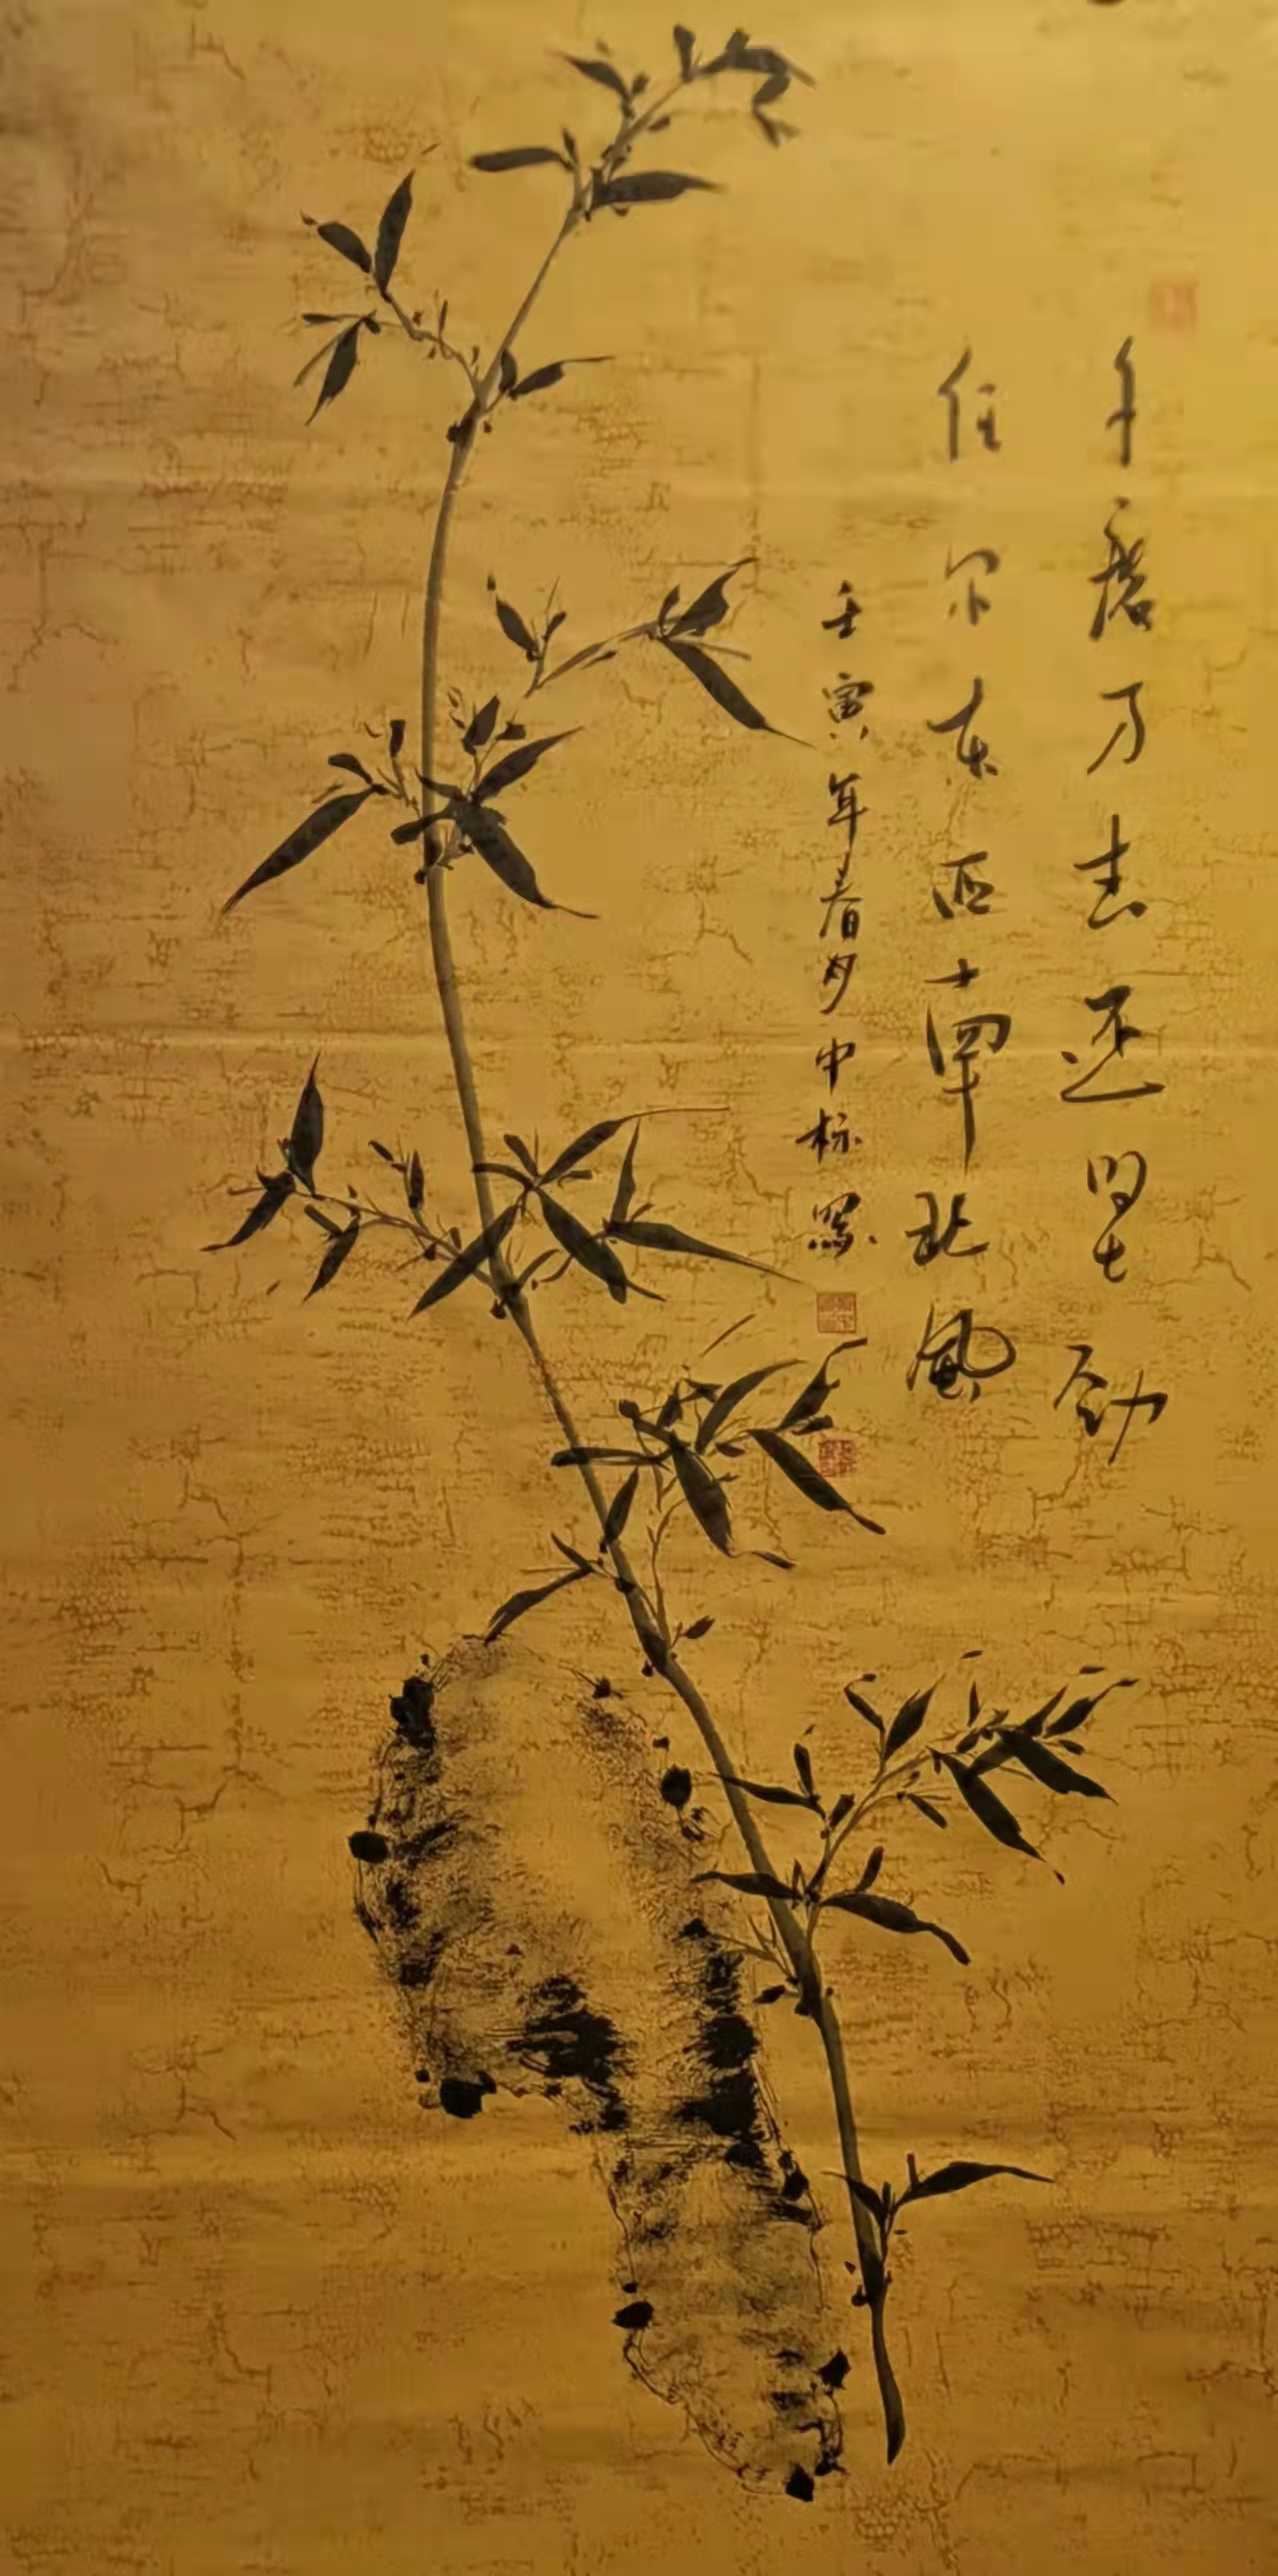 千磨万击还坚劲
任尔东西南北风
壬寅年春月中标写